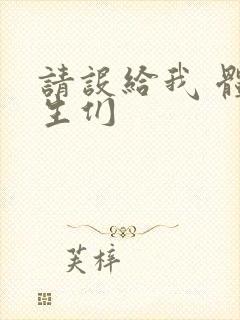 請設給我 體
生们
芙梓